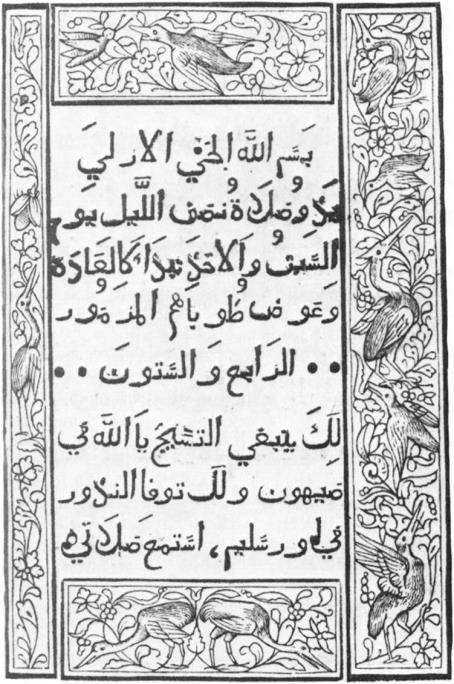 بسم الله الحي الازلي
وصلاة نصف الليل يوم
السبت والاحد نبدا كالعادة
وعوض طوباهم المزمور
•• الرابع والستون ••
لك ينبغي التسبيح يا الله في
صيهون ولك توفا النذور
في اورشليم، استمع صلاتي